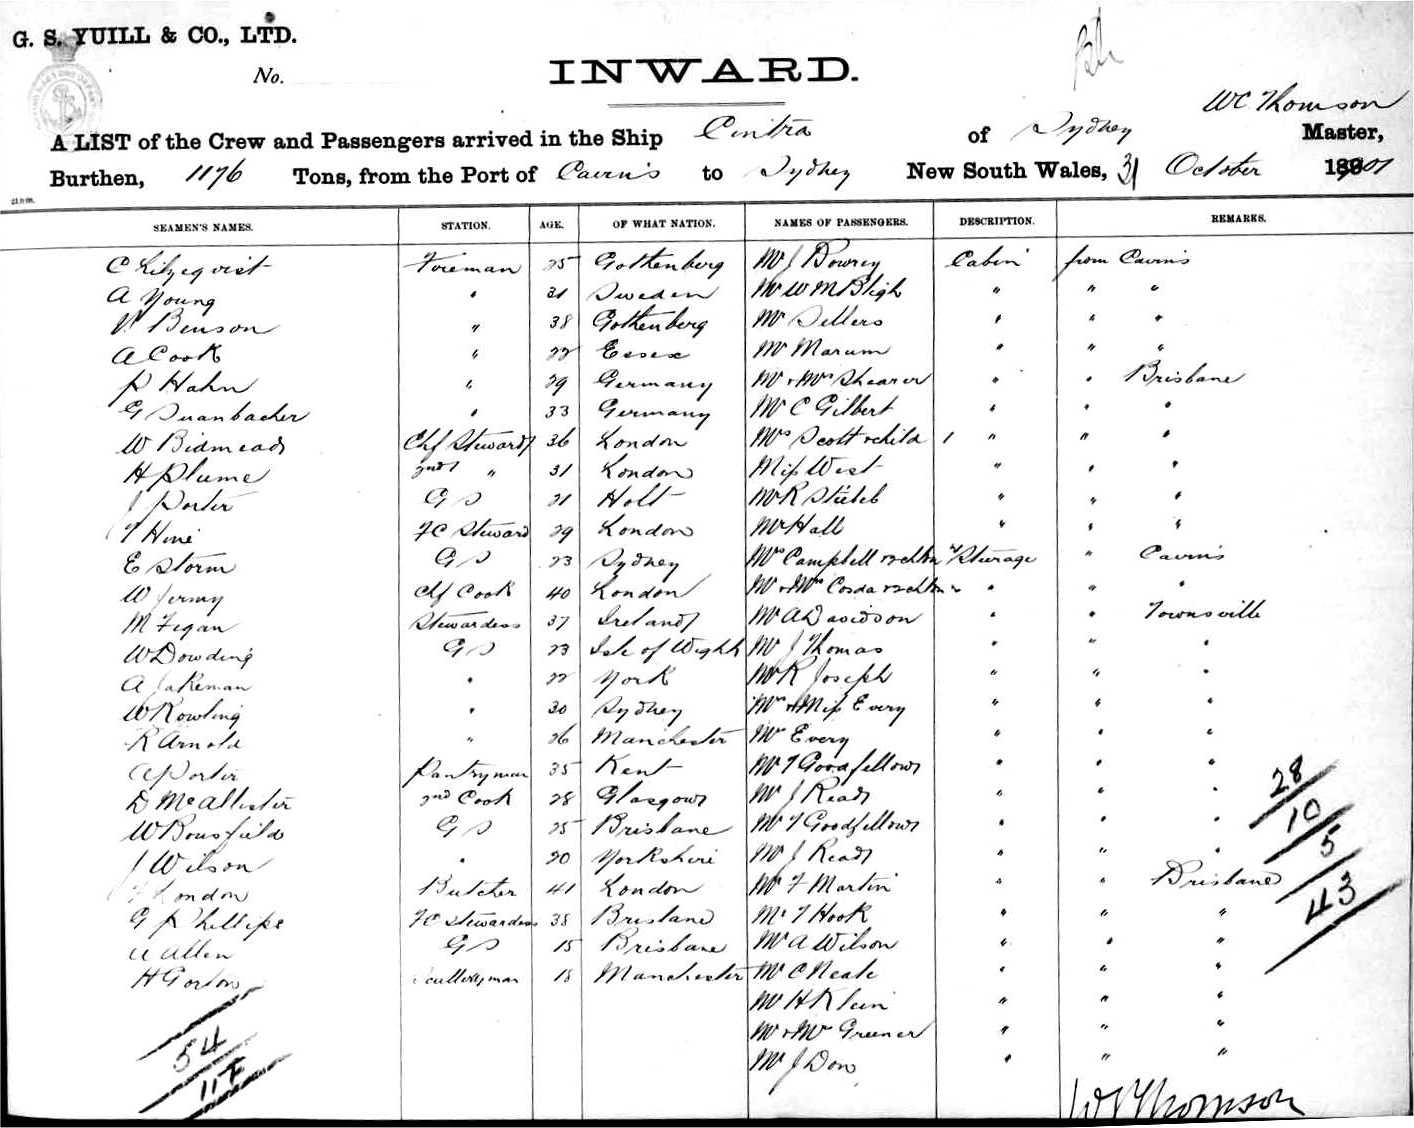 G. S. YUILL & CO., LTD.
No.
INWARD.
W C Thomson
A LIST of the Crew and Passengers arrived in the Ship Cintra of Sydney Master,
Burthen, 1176 Tons, from the Port of Cairns to Sydney New South Wales, 31 October 1901
SEAMEN'S NAMES. STATION. AGE. OF WHAT NATION. NAMES OF PASSENGERS. DESCRIPTION. REMARKS.
C Lilzeqvist Foreman 25 Gothenberg Mr J Dowrey Cabin from Cairns
A Young " 31 Sweden Mr W M Bligh " " "
Benson " 38 Gothenberg Mr Sellers " " "
A Cook " 22 Essex Mr Marum " " "
P Hahn " 29 Germany Mr & Mrs Shearer " " Brisbane
G 33 Germany Mr C Gilbert " " "
W Bidmead Chf Steward 36 London Mrs Scott & child 1 " " "
H Plume 2nd " 31 London Miss West " " "
J Porter G S 21 Holt Mr R Stieleb " " "
T Hine FC Steward 29 London Mr Hall " " "
E Storm G S 23 Sydney Mrs Campbell Sturage " Cairns
W Jermy Chf Cook 40 London Mr & Mrs Corda " " "
M Fegan Stewardess 37 Ireland Mr A Davidson " " Townsville
W Dowding G S 23 Isle of Wight Mr J Thomas " " "
A Jakeman " 22 York Mr R Joseph " " "
W Rowling " 30 Sydney Mrs & Miss Every " " "
R Arnold " 26 Manchester Mr Every " " "
A Porter Pantryman 35 Kent Mr T Goodfellow " " "
D McAllister 2nd Cook 28 Glasgow Mr J Read " " "
W Bousfield G S 25 Brisbane Mr T Goodfellow " " "
J Wilson " 20 Yorkshire Mr J Read " " "
London Butcher 41 London Mr F Martin " " Brisbane
G Phillips FC Stewardess 38 Brisbane Mr T Hook " " "
Allen G S 15 Brisbane Mr A Wilson " " "
H Gorton Sculleryman 18 Manchester Mr C Neale " " "
Mr H Klein " " "
Mr & Mrs Greener " " "
Mr J Don " " "
28
10
5
43
54
117
W C Thomson